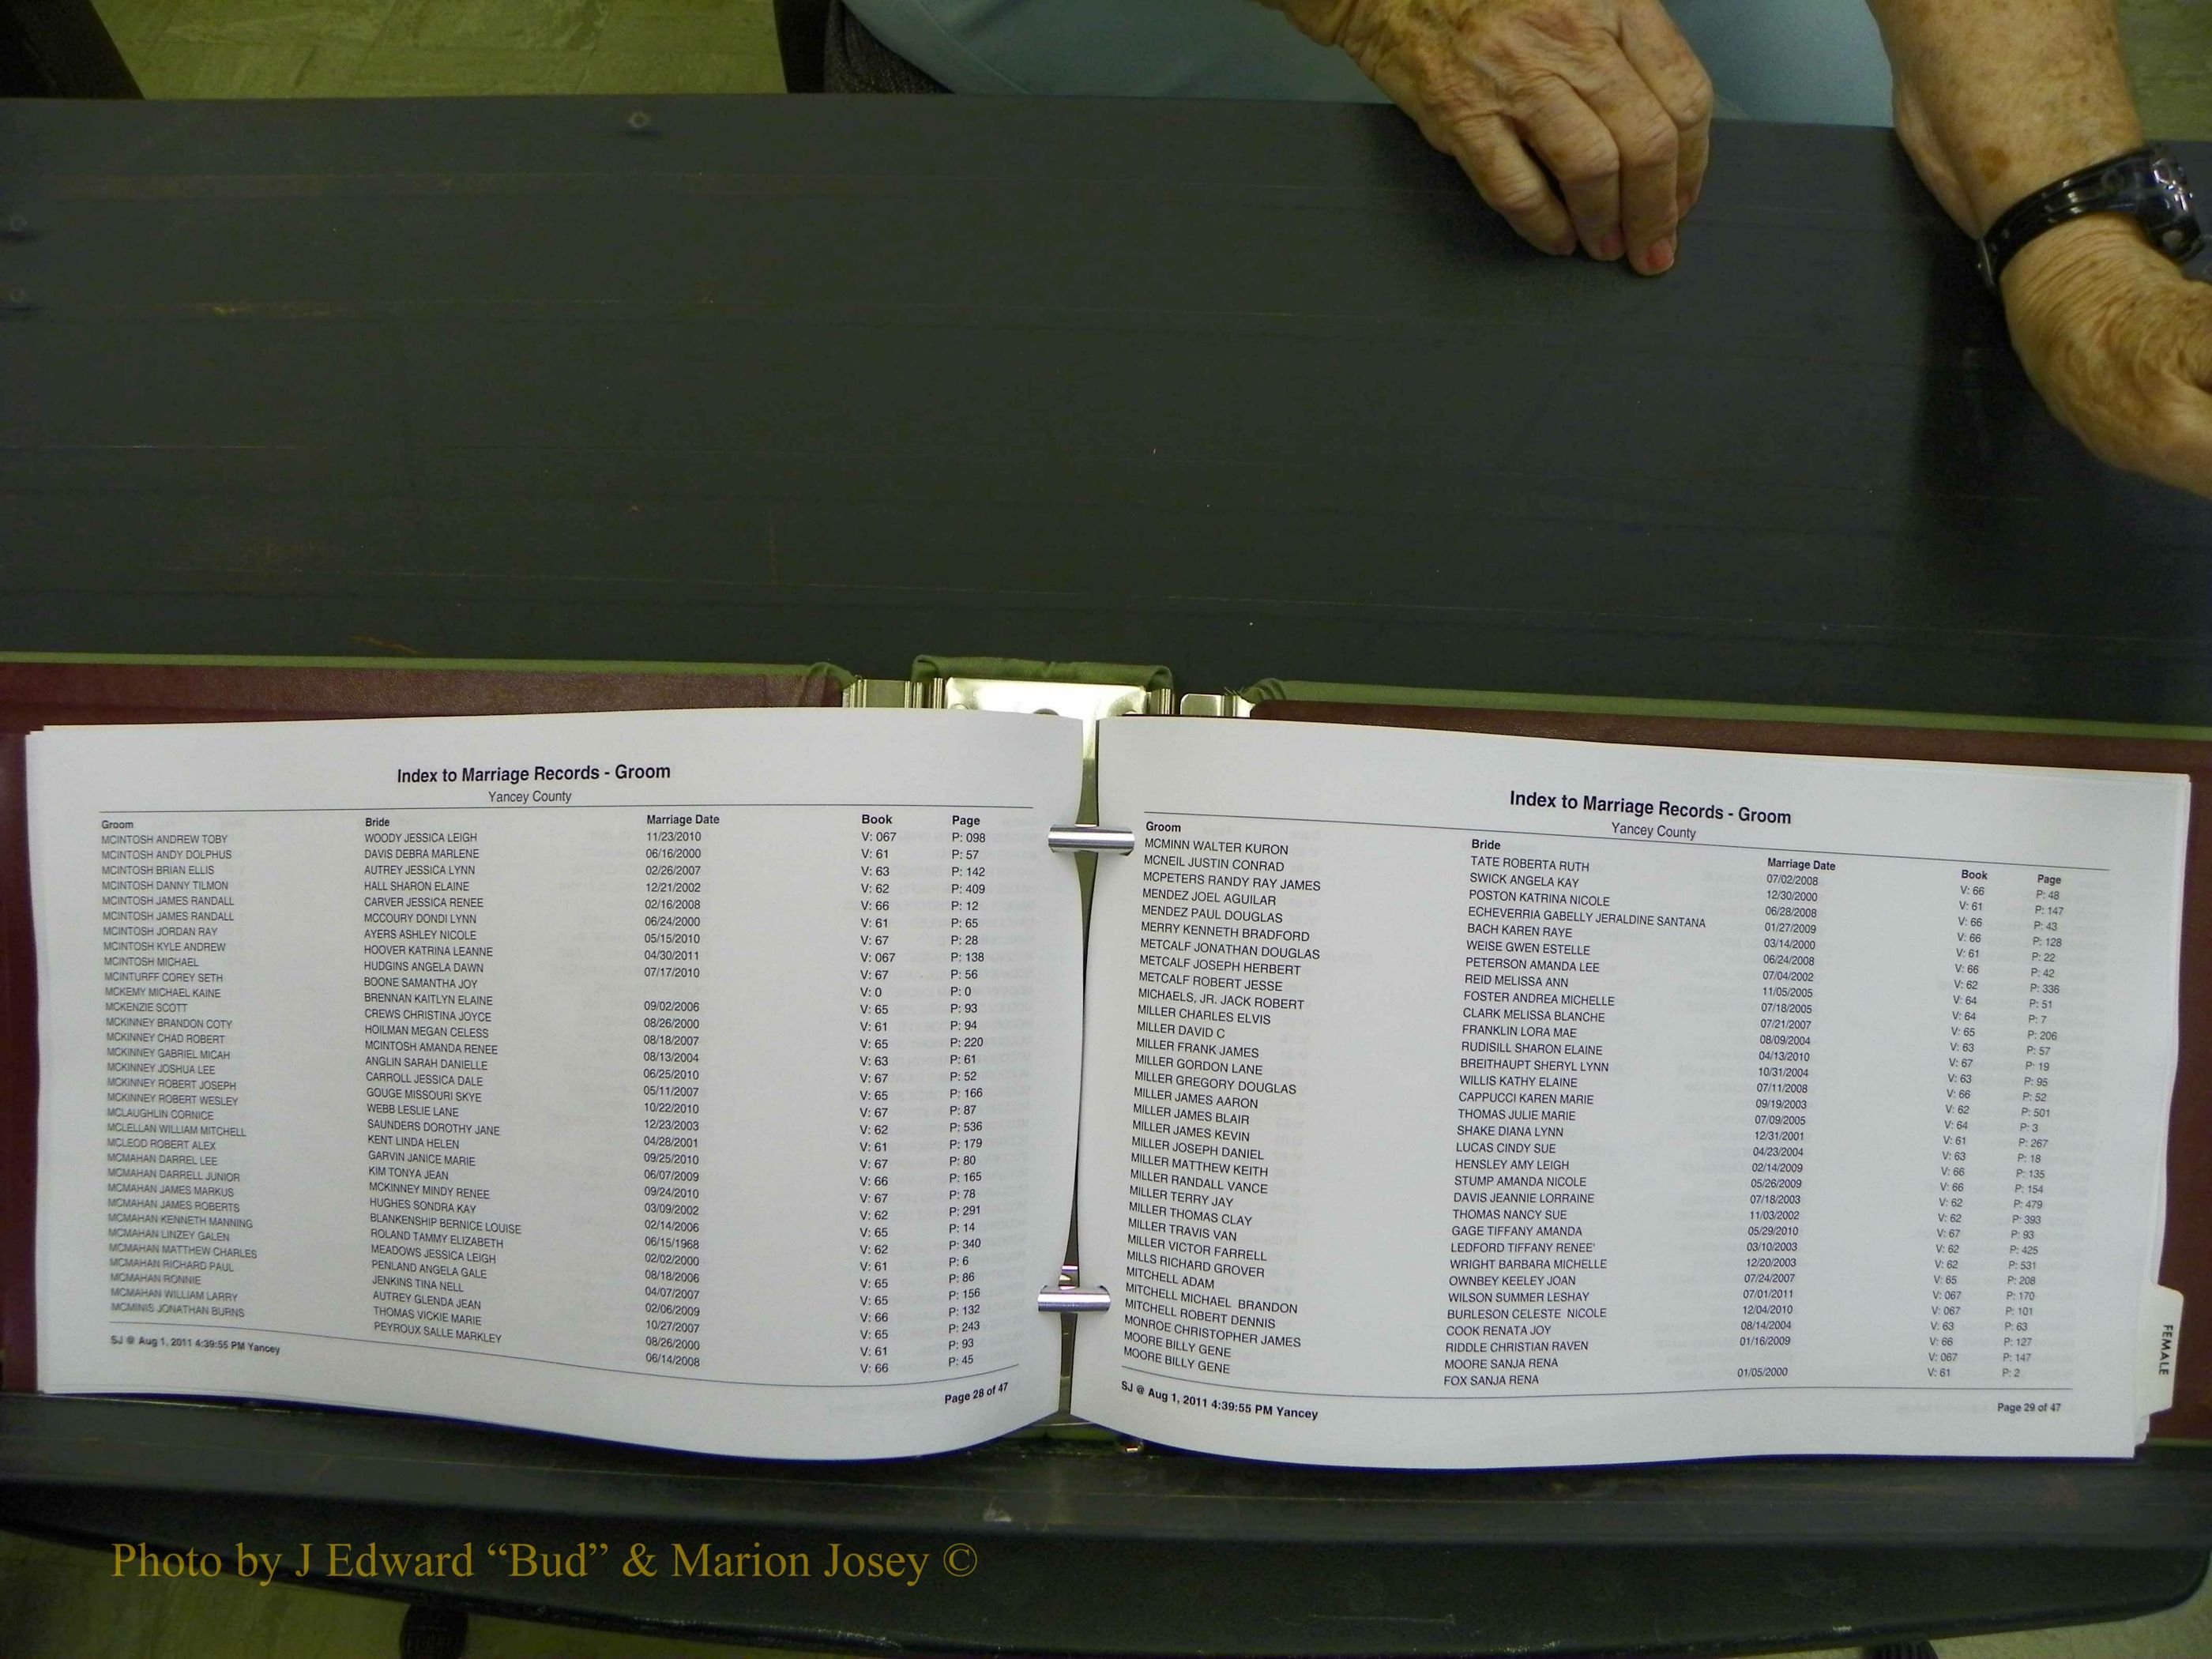 Index to Marriage Records - Groom
Yancey County
Groom Bride Marriage Date Book Page
MCINTOSH ANDREW TOBY WOODY JESSICA LEIGH 11/23/2010 V: 067 P: 098
MCINTOSH ANDY DOLPHUS DAVIS DEBRA MARLENE 06/16/2000 V: 61 P: 57
MCINTOSH BRIAN ELLIS AUTREY JESSICA LYNN 02/26/2007 V: 63 P: 142
MCINTOSH DANNY TILMON HALL SHARON ELAINE 12/21/2002 V: 62 P: 409
MCINTOSH JAMES RANDALL CARVER JESSICA RENEE 02/16/2008 V: 66 P: 12
MCINTOSH JAMES RANDALL MCCOURY DONDI LYNN 06/24/2000 V: 61 P: 65
MCINTOSH JORDAN RAY AYERS ASHLEY NICOLE 05/15/2010 V: 67 P: 28
MCINTOSH KYLE ANDREW HOOVER KATRINA LEANNE 04/30/2011 V: 067 P: 138
MCINTOSH MICHAEL HUDGINS ANGELA DAWN 07/17/2010 V: 67 P: 56
MCINTURFF COREY SETH BOONE SAMANTHA JOY V: 0 P: 0
MCKEMY MICHAEL KAINE BRENNAN KAITLYN ELAINE 09/02/2006 V: 65 P: 93
MCKENZIE SCOTT CREWS CHRISTINA JOYCE 08/26/2000 V: 61 P: 94
MCKINNEY BRANDON COTY HOILMAN MEGAN CELESS 08/18/2007 V: 65 P: 220
MCKINNEY CHAD ROBERT MCINTOSH AMANDA RENEE 08/13/2004 V: 63 P: 61
MCKINNEY GABRIEL MICAH ANGLIN SARAH DANIELLE 06/25/2010 V: 67 P: 52
MCKINNEY JOSHUA LEE CARROLL JESSICA DALE 05/11/2007 V: 65 P: 166
MCKINNEY ROBERT JOSEPH GOUGE MISSOURI SKYE 10/22/2010 V: 67 P: 87
MCKINNEY ROBERT WESLEY WEBB LESLIE LANE 12/23/2003 V: 62 P: 536
MCLAUGHLIN CORNICE SAUNDERS DOROTHY JANE 04/28/2001 V: 61 P: 179
MCLELLAN WILLIAM MITCHELL KENT LINDA HELEN 09/25/2010 V: 67 P: 80
MCLEOD ROBERT ALEX GARVIN JANICE MARIE 06/07/2009 V: 66 P: 165
MCMAHAN DARREL LEE KIM TONYA JEAN 09/24/2010 V: 67 P: 78
MCMAHAN DARRELL JUNIOR MCKINNEY MINDY RENEE 03/09/2002 V: 62 P: 291
MCMAHAN JAMES MARKUS HUGHES SONDRA KAY 02/14/2006 V: 65 P: 14
MCMAHAN JAMES ROBERTS BLANKENSHIP BERNICE LOUISE 06/15/1968 V: 62 P: 340
MCMAHAN KENNETH MANNING ROLAND TAMMY ELIZABETH 02/02/2000 V: 61 P: 6
MCMAHAN LINZEY GALEN MEADOWS JESSICA LEIGH 08/18/2006 V: 65 P: 86
MCMAHAN MATTHEW CHARLES PENLAND ANGELA GALE 04/07/2007 V: 65 P: 156
MCMAHAN RICHARD PAUL JENKINS TINA NELL 02/06/2009 V: 66 P: 132
MCMAHAN RONNIE AUTREY GLENDA JEAN 10/27/2007 V: 65 P: 243
MCMAHAN WILLIAM LARRY THOMAS VICKIE MARIE 08/26/2000 V: 61 P: 93
MCMINIS JONATHAN BURNS PEYROUX SALLE MARKLEY 06/14/2008 V: 66 P: 45
SJ @ Aug 1, 2011 4:39:55 PM Yancey Page 28 of 47
Index to Marriage Records - Groom
Yancey County
Groom Bride Marriage Date Book Page
MCMINN WALTER KURON TATE ROBERTA RUTH 07/02/2008 V: 66 P: 48
MCNEIL JUSTIN CONRAD SWICK ANGELA KAY 12/30/2000 V: 61 P: 147
MCPETERS RANDY RAY JAMES POSTON KATRINA NICOLE 06/28/2008 V: 66 P: 43
MENDEZ JOEL AGUILAR ECHEVERRIA GABELLY JERALDINE SANTANA 01/27/2009 V: 66 P: 128
MENDEZ PAUL DOUGLAS BACH KAREN RAYE 03/14/2000 V: 61 P: 22
MERRY KENNETH BRADFORD WEISE GWEN ESTELLE 06/24/2008 V: 66 P: 42
METCALF JONATHAN DOUGLAS PETERSON AMANDA LEE 07/04/2002 V: 62 P: 336
METCALF JOSEPH HERBERT REID MELISSA ANN 11/05/2005 V: 64 P: 51
METCALF ROBERT JESSE FOSTER ANDREA MICHELLE 07/18/2005 V: 64 P: 7
MICHAELS, JR. JACK ROBERT CLARK MELISSA BLANCHE 07/21/2007 V: 65 P: 206
MILLER CHARLES ELVIS FRANKLIN LORA MAE 08/09/2004 V: 63 P: 57
MILLER DAVID C RUDISILL SHARON ELAINE 04/13/2010 V: 67 P: 19
MILLER FRANK JAMES BREITHAUPT SHERYL LYNN 10/31/2004 V: 63 P: 95
MILLER GORDON LANE WILLIS KATHY ELAINE 07/11/2008 V: 66 P: 52
MILLER GREGORY DOUGLAS CAPPUCCI KAREN MARIE 09/19/2003 V: 62 P: 501
MILLER JAMES AARON THOMAS JULIE MARIE 07/09/2005 V: 64 P: 3
MILLER JAMES BLAIR SHAKE DIANA LYNN 12/31/2001 V: 61 P: 267
MILLER JAMES KEVIN LUCAS CINDY SUE 04/23/2004 V: 63 P: 18
MILLER JOSEPH DANIEL HENSLEY AMY LEIGH 02/14/2009 V: 66 P: 135
MILLER MATTHEW KEITH STUMP AMANDA NICOLE 05/26/2009 V: 66 P: 154
MILLER RANDALL VANCE DAVIS JEANNIE LORRAINE 07/18/2003 V: 62 P: 479
MILLER TERRY JAY THOMAS NANCY SUE 11/03/2002 V: 62 P: 393
MILLER THOMAS CLAY GAGE TIFFANY AMANDA 05/29/2010 V: 67 P: 93
MILLER TRAVIS VAN LEDFORD TIFFANY RENEE' 03/10/2003 V: 62 P: 425
MILLER VICTOR FARRELL WRIGHT BARBARA MICHELLE 12/20/2003 V: 62 P: 531
MILLS RICHARD GROVER OWNBEY KEELEY JOAN 07/24/2007 V: 65 P: 208
MITCHELL ADAM WILSON SUMMER LESHAY 07/01/2011 V: 067 P: 170
MITCHELL MICHAEL BRANDON BURLESON CELESTE NICOLE 12/04/2010 V: 067 P: 101
MITCHELL ROBERT DENNIS COOK RENATA JOY 08/14/2004 V: 63 P: 63
MONROE CHRISTOPHER JAMES RIDDLE CHRISTIAN RAVEN 01/16/2009 V: 66 P: 127
MOORE BILLY GENE MOORE SANJA RENA V: 067 P: 147
MOORE BILLY GENE FOX SANJA RENA 01/05/2000 V: 61 P: 2
SJ @ Aug 1, 2011 4:39:55 PM Yancey Page 29 of 47
FEMALE
Photo by J Edward “Bud” & Marion Josey ©